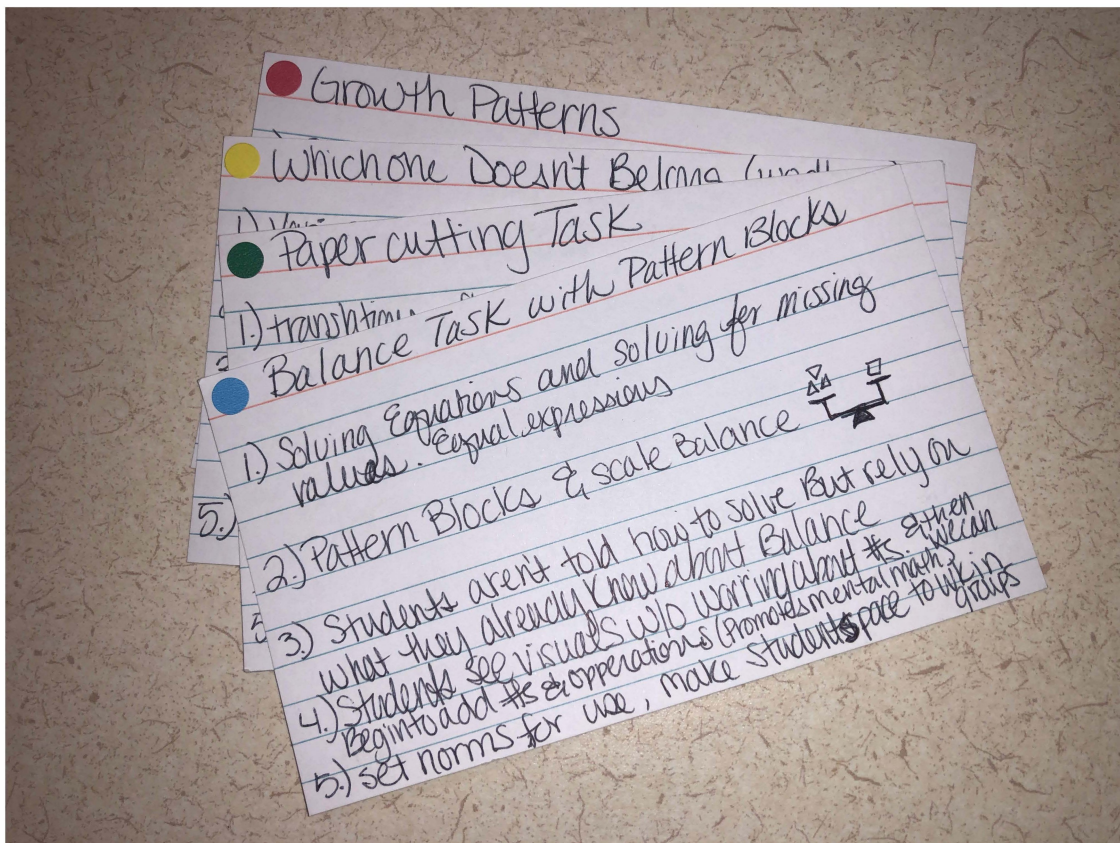 Growth Patterns
Which one Doesn't Belong
1.)
Paper cutting Task
1.)
Balance Task with Pattern Blocks
1.) Solving Equations and solving for missing
values. Equal expressions
2.) Pattern Blocks & scale Balance
3.) Students aren't told how to solve But rely on
what they already know about Balance
4.) Students see visuals w/o worring about #s. & then
Begin to add #s & opperations (Promotes mental math) we can
5.) set norms for use, make student space to wk in
groups
5.)
5